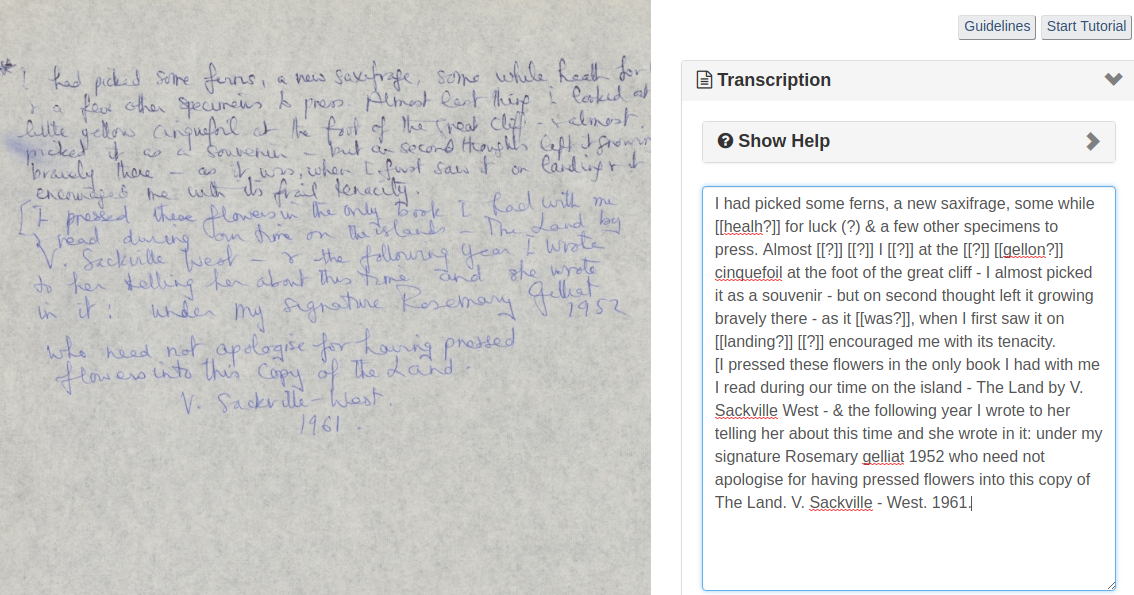 * I had picked some ferns, a new saxifrage, some white heath for
& a few other specimens to press. Almost last thing I looked at
little yellow cinquefoil at the foot of the great cliff - & almost
picked it as a souvenir - but on second thoughts left it growing
bravely there - as it was, when I first saw it on landing & it
encouraged me with its frail tenacity.
[I pressed these flowers in the only book I had with me
& read during our time on the islands - The Land by
V. Sackville West - & the following year I wrote
to her telling her about this time and she wrote
in it: under my signature Rosemary Gilliat
1952
who need not apologise for having pressed
flowers into this copy of The Land.
V. Sackville-West.
1961.
Guidelines
Start Tutorial
Transcription
Show Help
I had picked some ferns, a new saxifrage, some while
[[healh?]] for luck (?) & a few other specimens to
press. Almost [[?]] [[?]] I [[?]] at the [[?]] [[gellon?]]
cinquefoil at the foot of the great cliff - I almost picked
it as a souvenir - but on second thought left it growing
bravely there - as it [[was?]], when I first saw it on
[[landing?]] [[?]] encouraged me with its tenacity.
[I pressed these flowers in the only book I had with me
I read during our time on the island - The Land by V.
Sackville West - & the following year I wrote to her
telling her about this time and she wrote in it: under my
signature Rosemary gelliat 1952 who need not
apologise for having pressed flowers into this copy of
The Land. V. Sackville - West. 1961.